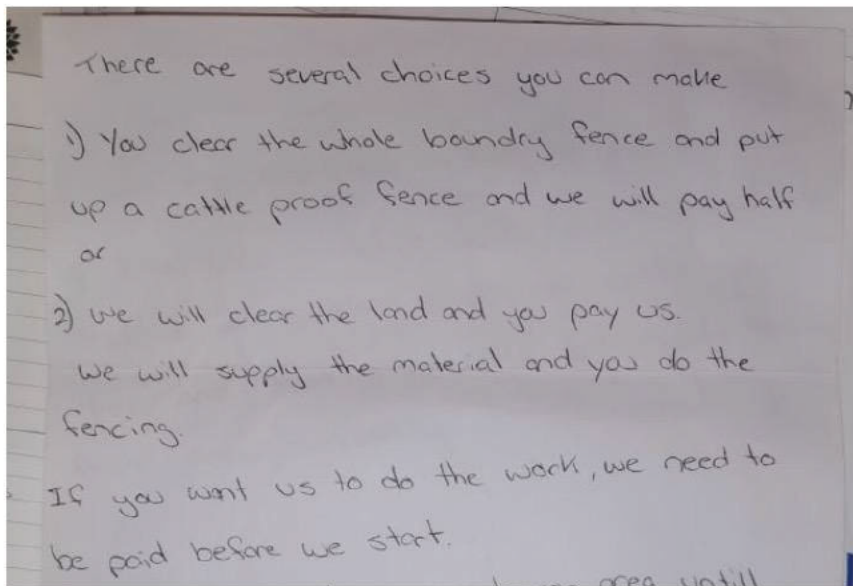 There are several choices you can make
1) You clear the whole boundry fence and put
up a cattle proof fence and we will pay half
or
2) we will clear the land and you pay us.
we will supply the material and you do the
fencing.
If you want us to do the work, we need to
be paid before we start.
area untill